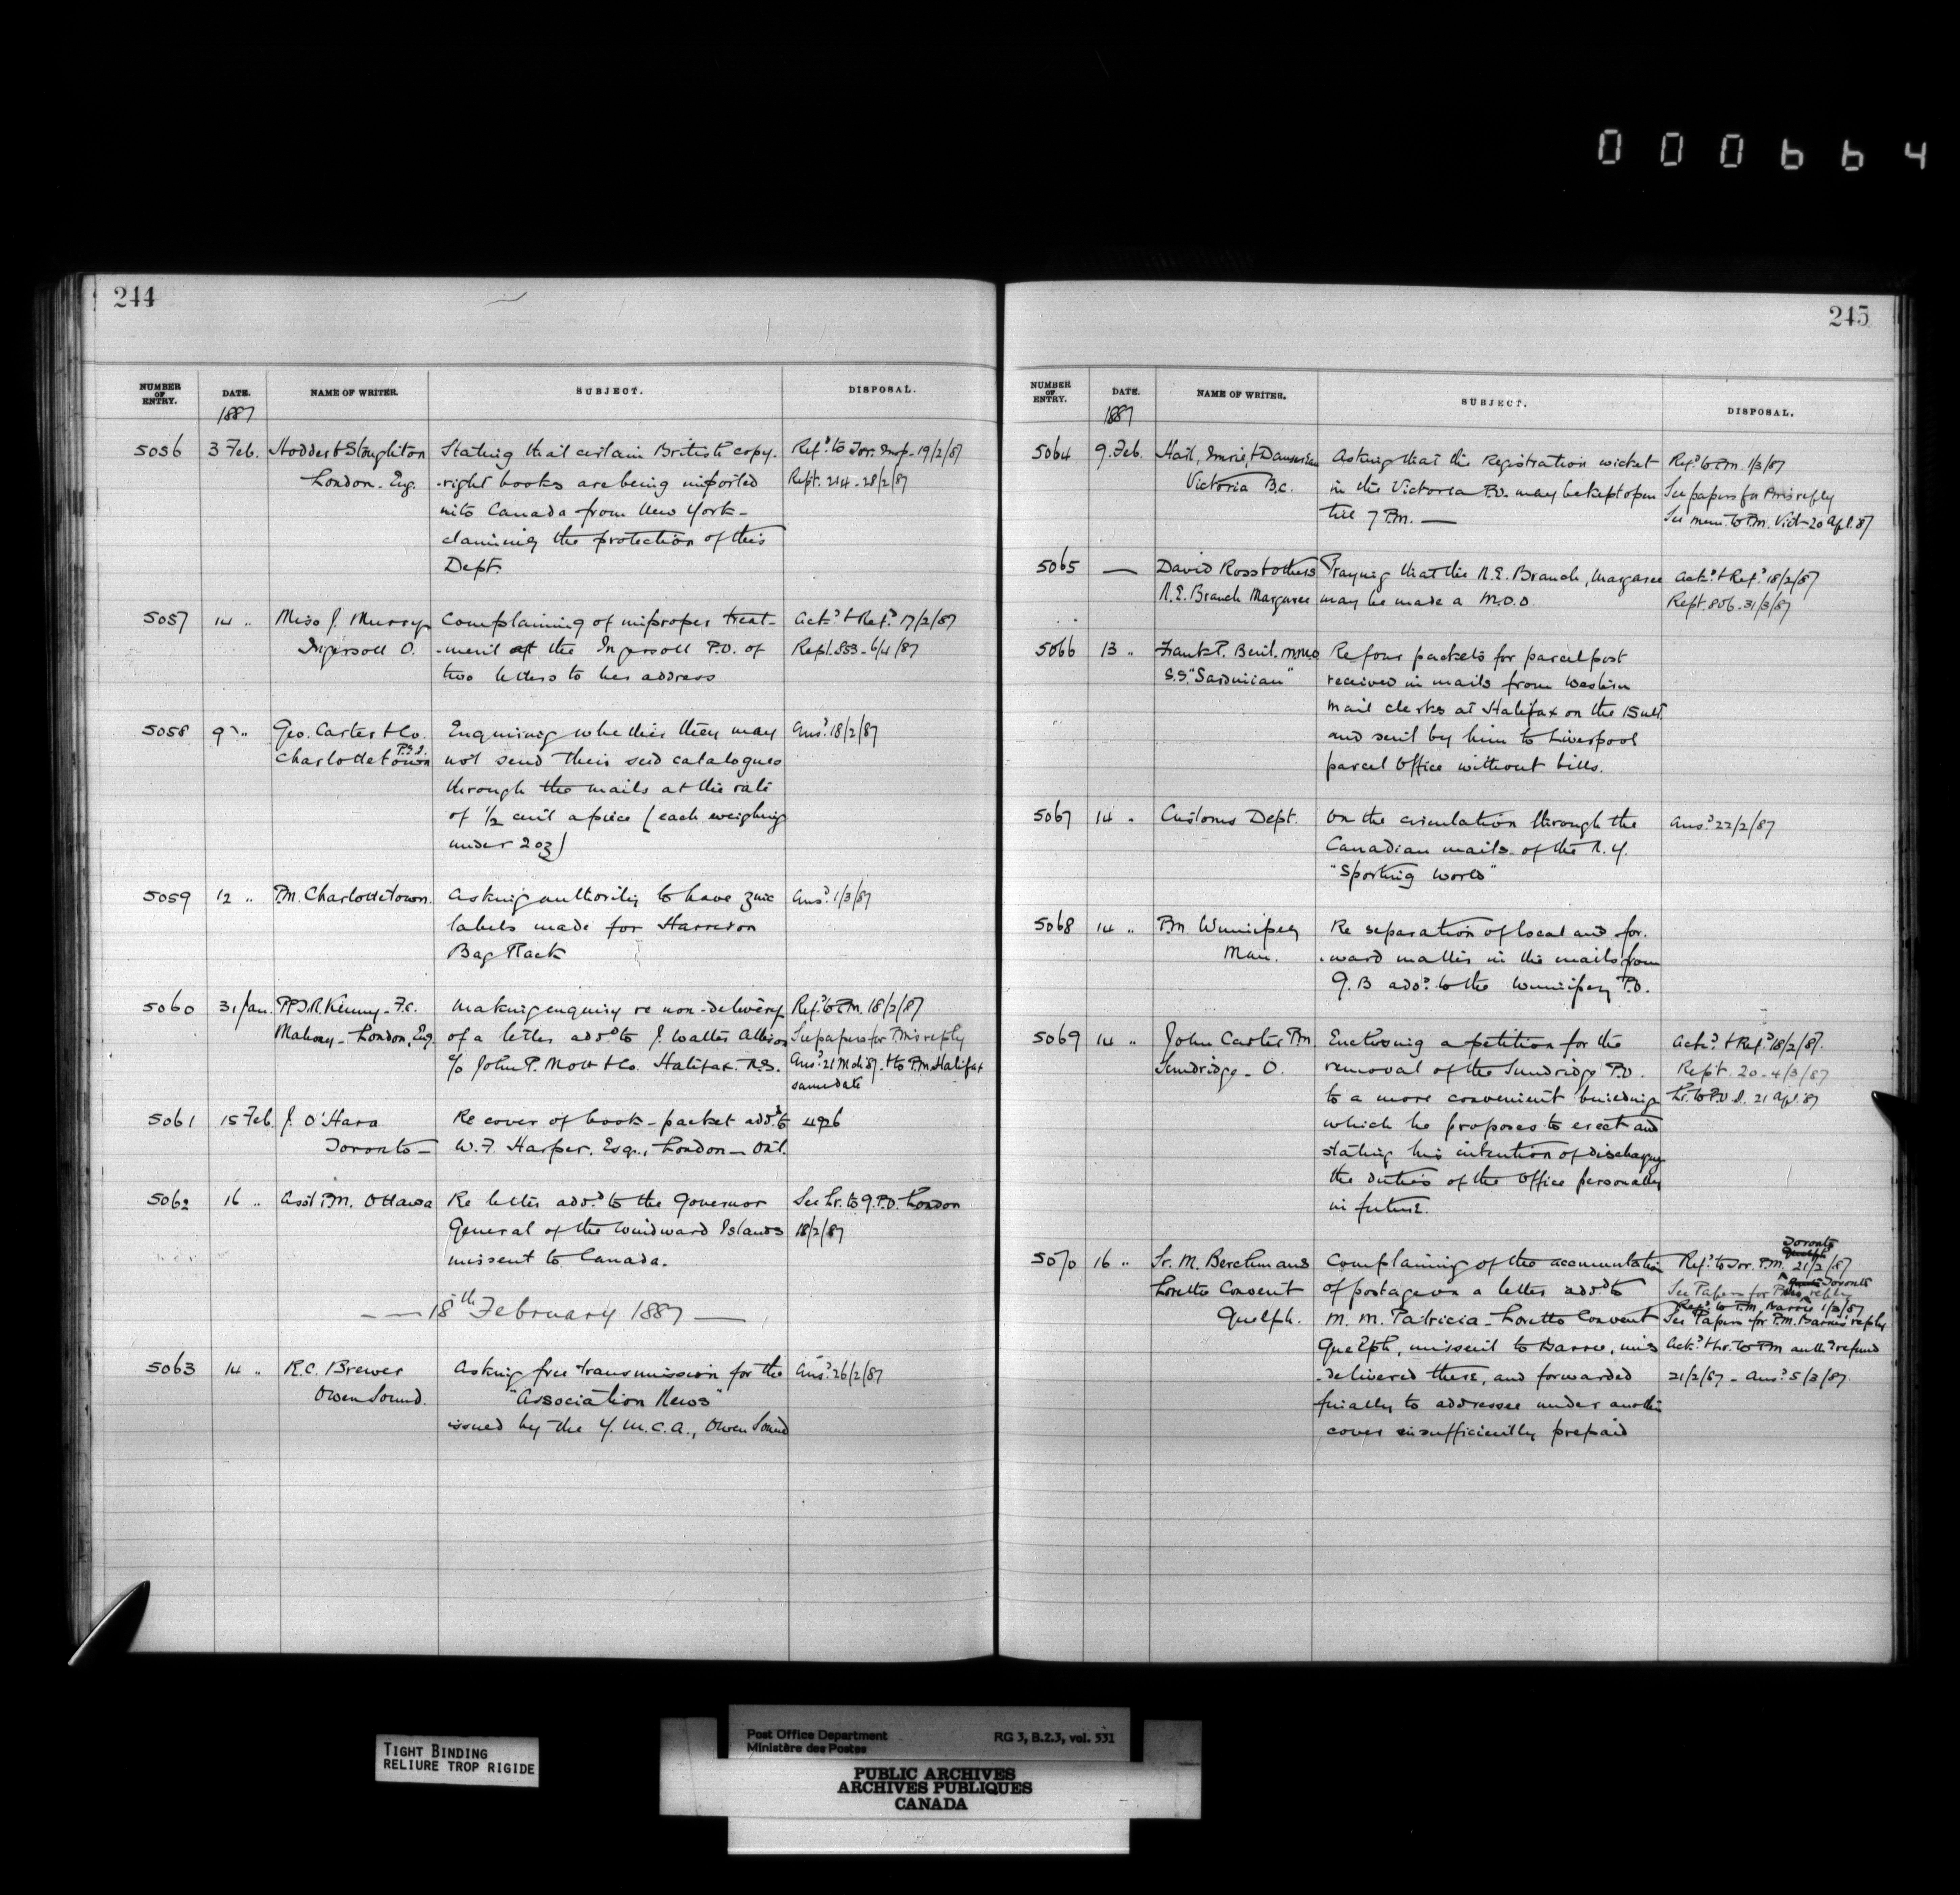 000664
244
NUMBER OF ENTRY. DATE. NAME OF WRITER. SUBJECT. DISPOSAL.
1887
5056 3 Feb. Hodder & Stoughton Stating that certain British copy- Refd to Tor. Insp. 19/2/87
London. Eng. -right books are being imported Rept. 214 - 28/2/87
into Canada from New York -
claiming the protection of this
Dept.
5057 14 " Miss J. Murray Complaining of improper treat- Ackd & Refd 17/2/87
Ingersoll O. -ment at the Ingersoll P.O. of Rept. 853 - 6/4/87
two letters to her address
5058 9 " Geo. Carter & Co. Enquiring whether they may Ansd 18/2/87
Charlottetown P.E.I. not send their seed catalogues
through the mails at the rate
of 1/2 cent apiece (each weighing
under 2 oz)
5059 12 " P.M. Charlottetown. Asking authority to have zinc Ansd 1/3/87
labels made for Harrison
Bag Rack
5060 31 Jan. T.R. Kenny - F.C. Making enquiry re non-delivery Refd to P.M. 18/2/87
Mahony - London, Eng. of a letter addd to J. Walter Allison See papers for P.M's reply
c/o John P. Mott & Co. Halifax. N.S. Ansd 21 Mch 87. & to P.M. Halifax
same date
5061 15 Feb. J. O'Hara Re cover of book-packet addd to 4926
Toronto - W. F. Harper, Esq., London - Ont.
5062 16 " Asst P.M. Ottawa Re letter addd to the Governor See Lr. to G.P.O. London
General of the Windward Islands 18/2/87
missent to Canada.
- - 18th February 1887 -
5063 14 " R.C. Brewer Asking free transmission for the Ansd 26/2/87
Owen Sound. "Association News"
issued by the Y.M.C.A., Owen Sound
245
NUMBER OF ENTRY. DATE. NAME OF WRITER. SUBJECT. DISPOSAL.
1887
5064 9 Feb. Hall, & Asking that the Registration wicket Refd to P.M. 1/3/87
Victoria B.C. in the Victoria P.O. may be kept open See papers for P.M's reply
till 7 P.M. - See mem. to P.M. Vict - 20 Apl. 87
5065 - David Ross & others Praying that the N.E. Branch, Margaree Ackd & Refd 18/2/87
N.E. Branch Margaree may be made a M.O.O. Rept. 806 - 31/3/87
5066 13 " Frank P. M.M.O Re four packets for parcel post
S.S. "Sardinian" received in mails from Western
mail clerks at Halifax on the 15 ult.
and sent by him to Liverpool
parcel office without bills.
5067 14 " Customs Dept. On the circulation through the Ansd 22/2/87
Canadian mails of the N.Y.
"Sporting World"
5068 14 " P.M. Winnipeg Re separation of local and for-
Man. -ward matter in the mails from
G.B addd to the Winnipeg P.O.
5069 14 " John Carter P.M Enclosing a petition for the Ackd & Refd 18/2/87.
Sundridge - O. removal of the Sundridge P.O. Rept. 20 - 4/3/87
to a more convenient building Lr. to P.O.I. 21 Apl. 87
which he proposes to erect and
stating his intention of discharging
the duties of the office personally
in future.
5070 16 " Sr. M. Berchmans Complaining of the accumulation Refd to Tor. P.M. Toronto 21/2/87
Loretto Convent of postage on a letter addd to See Papers for P.M's Toronto reply
Guelph. M. M. Patricia - Loretto Convent Refd to P.M. Barrie 1/3/87
See Papers for P.M. Barrie's reply
Guelph, missent to Barrie, mis- Ackd & Lr. to P.M authd refund
-delivered there, and forwarded 21/2/87 - Ansd 5/3/87.
finally to addressee under another
cover insufficiently prepaid
TIGHT BINDING
RELIURE TROP RIGIDE
Post Office Department RG 3, B.2.3, vol. 531
Ministère des Postes
PUBLIC ARCHIVES
ARCHIVES PUBLIQUES
CANADA